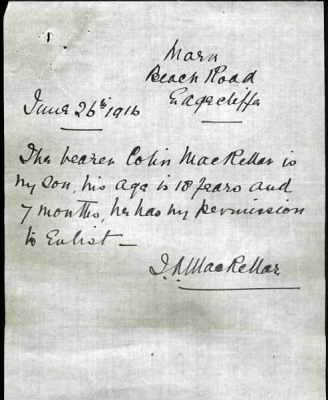 Mara
Beach Road
Edgecliffe
June 26th 1916
The bearer Colin MacKellar is
my son, his age is 18 years and
7 months, he has my permission
to Enlist —
MacKellar